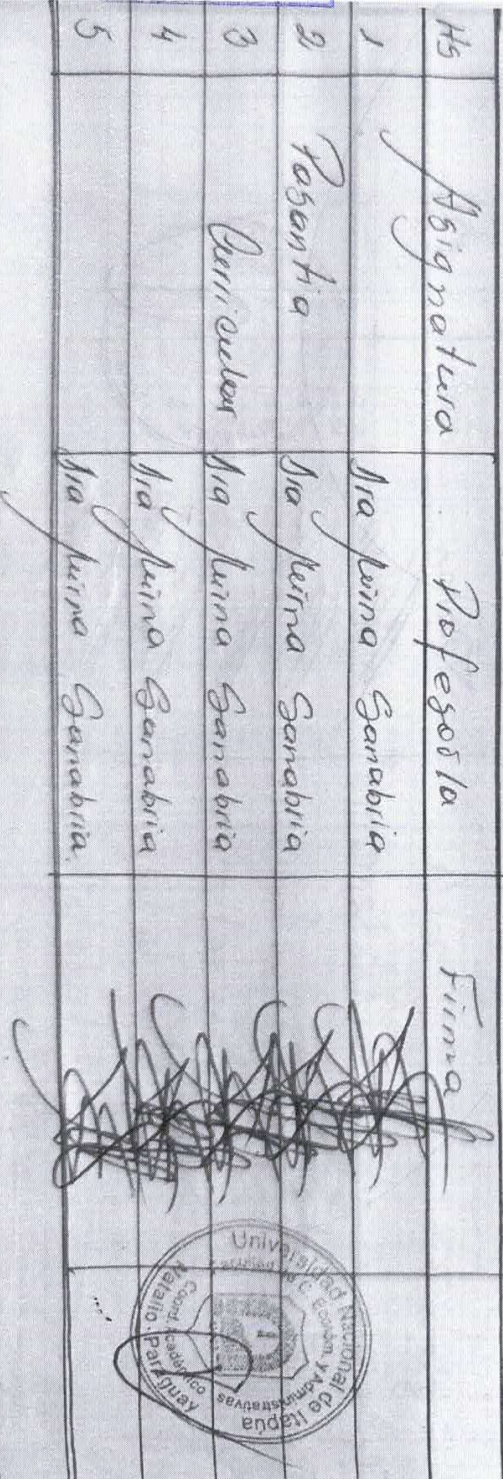 Hs Asignatura Profesor/a Firma
1 Dra Mirna Sanabria
2 Pasantia Dra Mirna Sanabria
3 Curricular Dra Mirna Sanabria
4 Dra Mirna Sanabria
5 Dra Mirna Sanabria
Universidad Nacional de Itapúa
Facultad de C. Econom. y Administrativas
Coord. Académico
Natalio - Paraguay